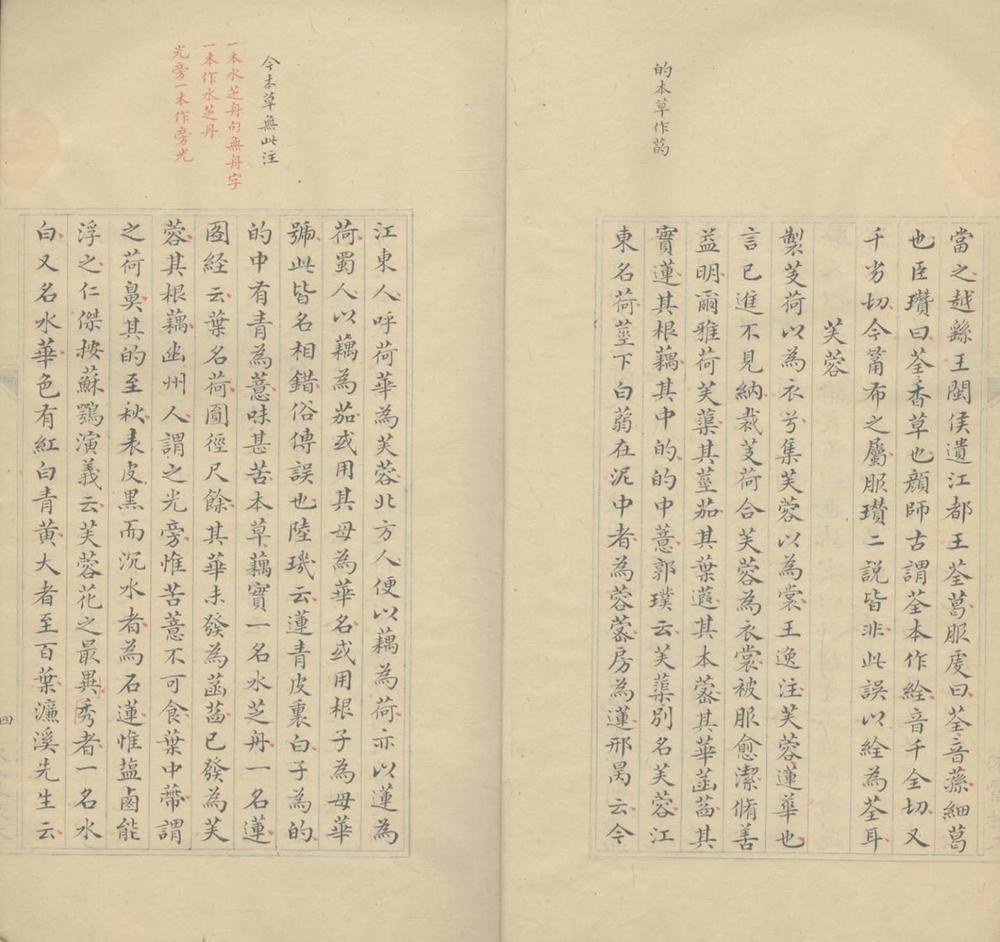 的本草作菂
當之越繇王閩侯遺江都王荃葛服䖍曰荃音蓀細葛
也臣瓚曰荃香草也顔師古謂荃本作絟音千全切又
千劣切今筩布之屬服瓚二説皆非此誤以絟為荃耳
芙蓉
製芰荷以為衣兮集芙蓉以為裳王逸注芙蓉蓮華也
言已進不見納裁芰荷合芙蓉為衣裳被服愈潔脩善
益明爾雅荷芙蕖其莖茄其葉蕸其本蔤其華菡萏其
實蓮其根藕其中的的中薏郭璞云芙蕖别名芙蓉江
東名荷莖下白蒻在泥中者為蓉蔤房為蓮邢昺云今
今本草無此注
一本水芝丹句無丹字
一本作水芝丹
光旁一本作旁光
江東人呼荷華為芙蓉北方人便以藕為荷亦以蓮為
荷蜀人以藕為茄或用其母為華名或用根子為母華
號此皆名相錯俗傳誤也陸璣云蓮青皮裏白子為的
的中有青為薏味甚苦本草藕實一名水芝丹一名蓮
圖经云葉名荷圓徑尺餘其華未發為菡萏已發為芙
蓉其根藕幽州人謂之光旁惟苦薏不可食葉中蔕謂
之荷鼻其的至秋表皮黑而沉水者為石蓮惟塩鹵能
浮之仁傑按蘇鶚演義云芙蓉花之最異秀者一名水
白又名水華色有紅白青黄大者至百葉濂溪先生云
四